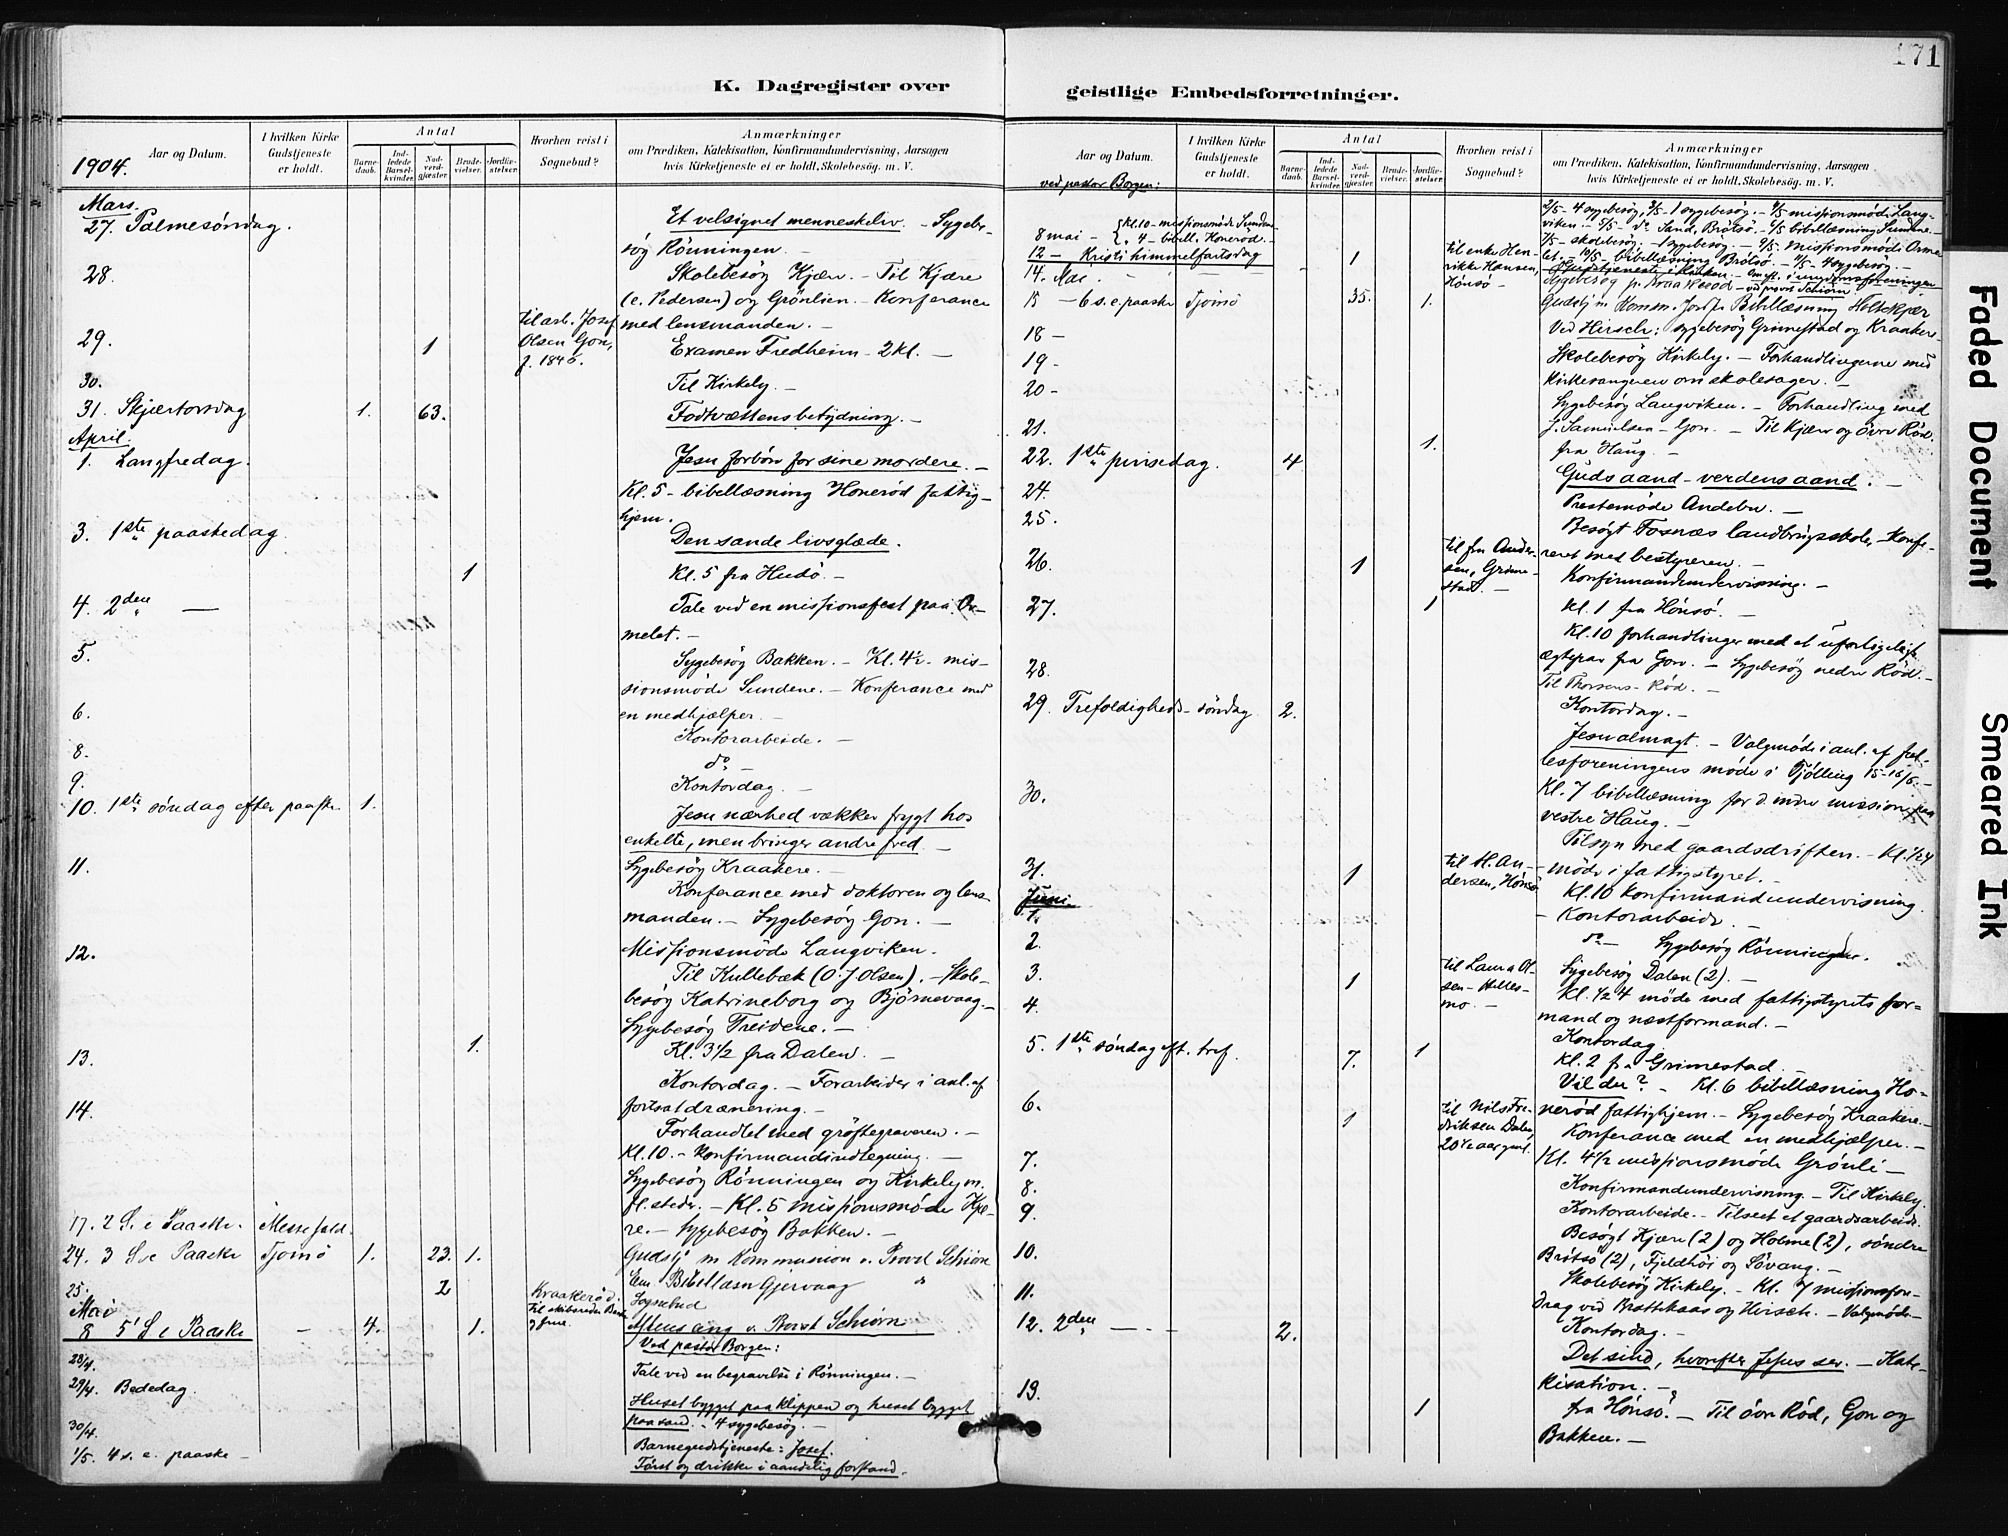 171
K. Dagregister over
geistlige Embedsforretninger.
Aar og Datum.
I hvilken Kirke
Gudstjeneste
er holdt.
Antal
Barne-
daab.
Ind-
ledede
Barsel-
kvinder.
Nad-
verd-
gjæster
Brude-
vielser.
Jordfæ-
stelser.
Hvorhen reist i
Sognebud?
Anmærkninger
om Prædiken, Katekisation, Konfirmandundervisning, Aarsagen
hvis Kirketjeneste ei er holdt, Skolebesøg. m. V.
1904.
Mars.
27. Palmesøndag.
Et velsignet menneskeliv. - Sygebe-
søg Rönningen -
28.
Skolebesøg Kjær. - Til Kjære
(e. Pedersen) og Grönlien. - Konferance
med lensmanden. -
29.
1
til arb. Josef
Olsen Gon,
f. 1846.
Examen Fredheim - 2 kl. -
30.
Til Kirkely. -
31. Skjærtorsdag
1.
63.
Fodtvættens betydning. -
April.
1. Langfredag.
Jesu forbön for sine mordere. -
Kl. 5 - bibellæsning Honeröd fattig-
hjem.
3. 1ste paaskedag
Den sande livsglæde.
1
Kl. 5 fra Hudö. -
4. 2den —
Tale ved en missionsfest paa Or-
melet. -
5.
Sygebesøg Bakken. - Kl. 4½ - mis-
sionsmöde Sundene. - Konferance med
en medhjælper. -
6.
Kontorarbeide. -
8.
do -
9.
Kontordag. -
10. 1ste söndag efter paaske
1.
Jesu nærhed vækker frygt hos
enkelte, men bringer andre fred. -
11.
Sygebesøg Kraakere. -
Konferance med doktoren og lens-
manden. - Sygebesøg Gon. -
12.
Missionsmöde Langviken. -
Til Kullebæk (O. J. Olsen). - Skole-
besøg Katrineborg og Björnevaag. -
Sygebesøg Treidene. -
13.
1.
Kl. 3½ fra Dalen. -
Kontordag. - Forarbeider i anl. af
fortsat drænering. -
14.
Forhandlet med gröftegraveren. -
Kl. 10. - Konfirmandindtegning. -
Sygebesøg Rönningen og Kirkely m.
fl. steder. - Kl. 5 missionsmöde Kjæ-
re. - Sygebesøg Bakken. -
17. 2 S. e Paaske.
Messefald.
24. 3 S. e Paaske
Tjømø
1.
23.
1.
Gudstj m Kommunion v. Provst Schiørn
Em. Bibellæsn Gjervaag
25.
2
Kraakeröd.
Sognebud
Mai
8 5' S e Paaske
-
4.
1.
Aftensang v. Provst Schiørn
Ved pastor Borgen:
28/4.
Tale ved en begravelse i Rönningen. -
29/4. Bededag.
Huset bygget paa klippen og huset bygget
paa sand. - 4 sygebesøg. -
30/4.
Barnegudstjeneste: Josef.
1/5. 4 s. e. paaske -
Törst og drikke i aandelig forstand.
Aar og Datum.
I hvilken Kirke
Gudstjeneste
er holdt.
Antal
Barne-
daab.
Ind-
ledede
Barsel-
kvinder.
Nad-
verd-
gjæster
Brude-
vielser.
Jordfæ-
stelser.
Hvorhen reist i
Sognebud?
Anmærkninger
om Prædiken, Katekisation, Konfirmandundervisning, Aarsagen
hvis Kirketjeneste ei er holdt, Skolebesøg. m. V.
ved pastor Borgen:
2/5 - 4 sygebesøg, 3/5 - 1 sygebesøg. - 4/5 missionsmöde Lang-
viken. - 5/5 - do Sand, Brötsö. - 6/5 bibellæsning Sundene.
8 mai -
Kl. 10 - missionsmöde Sundene
" 4 - bibell. Honeröd. -
12 - Kristi himmelfartsdag
1
til enke Hen-
rikke Hansen,
Hönsö -
14. Mai
15 - 6 s. e. paaske
Tjømø
35.
1.
Bibellæsning Holtekjær
18 -
Ved Hirsch: sygebesøg Grimestad og Kraakere -
19 -
Skolebesøg Kirkely. - Forhandlingerne med
kirkesangeren om skolesager. -
20 -
Sygebesøg Langviken. - Forhandling med
J. Samuelsen - Gon. - Til Kjær og övre Röd.
21.
1.
fra Haug. -
22. 1ste pinsedag.
4
Guds aand - verdens aand. -
24.
Prestemöde Andebu. -
25.
Besögt Fosnæs landbrugsskole. - Konfe-
reret med bestyreren. -
26.
1
til fru Ander-
sen, Grime-
stad. -
Konfirmandundervisning. -
27.
1
Kl. 1 fra Hönsö. -
Kl. 10 forhandlinger med et uforligeligt
ægtepar fra Gon. - Sygebesøg nedre Röd. -
28.
Til Thorsens - Röd. -
Kontordag. -
29. Trefoldigheds-söndag
2.
Jesu almagt. - Valgmöde i anl. af fæl-
lesforeningens möde i Tjölling 15-16/6. -
Kl. 7 bibellæsning for d. indre mission paa
vestre Haug. -
30.
Tilsyn med gaardsdriften. - Kl. ½4
möde i fattigstyret. -
31.
1
til H. An-
dersen, Hönsö
Kl. 10 konfirmandundervisning.
Juni.
1.
- Kontorarbeide. -
2.
do - Sygebesøg Rönningen.
3.
1
til Laura Ol-
sen - Hilles-
mo. -
Sygebesøg Dalen (2). -
4.
Kl. ½4 möde med fattigstyrets for-
mand og næstformand. -
Kontordag
5. 1ste söndag eft. tref.
7.
1
Kl. 2 fra Grimestad. -
Vil du? - Kl. 6 bibellæsning Ho-
neröd fattighjem. - Sygebesøg Kraakere. -
6.
1
til Nils Fre-
driksen Dalen,
20½ aar gml.
Konferance med en medhjælper. -
7.
Kl. 4½ missionsmöde Grönli -
8.
Konfirmandundervisning. - Til Kirkely
9.
Kontorarbeide. - Tilseet et gaardsarbeide.
10.
Besögt Kjære (2) og Holme (2), söndre
Brötsö (2), Fjeldhöi og Sövang. -
11.
Skolebesøg Kirkely. - Kl. 7 missionsfore-
drag ved Brattekaas og Hirsch. - Valgmöde -
Kontordag. -
12. 2den — - -
2.
Det sind, hvorefter Jesus ser. - Kate-
kisation. -
13.
1
fra Hönsö. - Til övre Röd, Gon og
Bakken. -
Faded Document
Smeared Ink